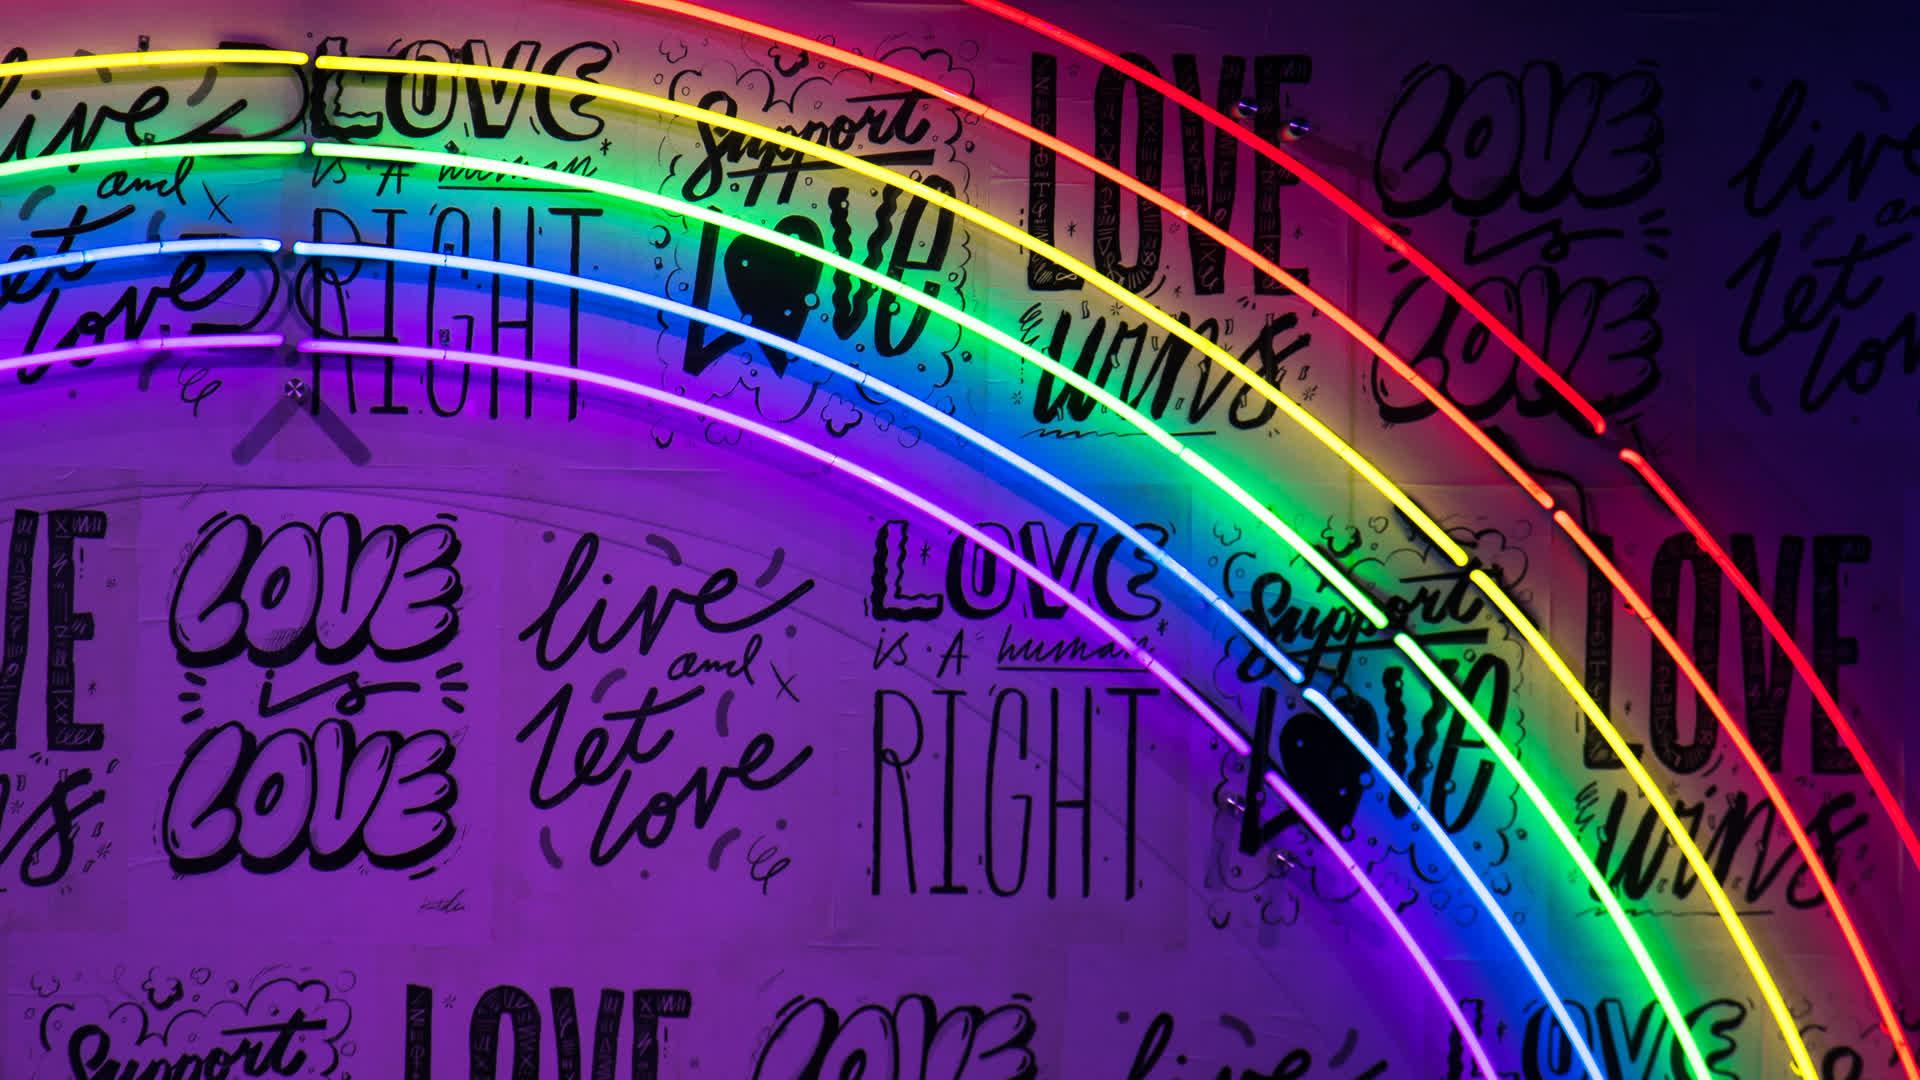 live
and
let
love
LOVE
is A human
RIGHT
Support
LOVE
LOVE
wins
LOVE
is
LOVE
live
a
let
lov
VE
s
LOVE
is
LOVE
live
and
let
love
LOVE
is A human
RIGHT
Support
LOVE
LOVE
wins
Support
LOVE
LOVE
live
LOVE